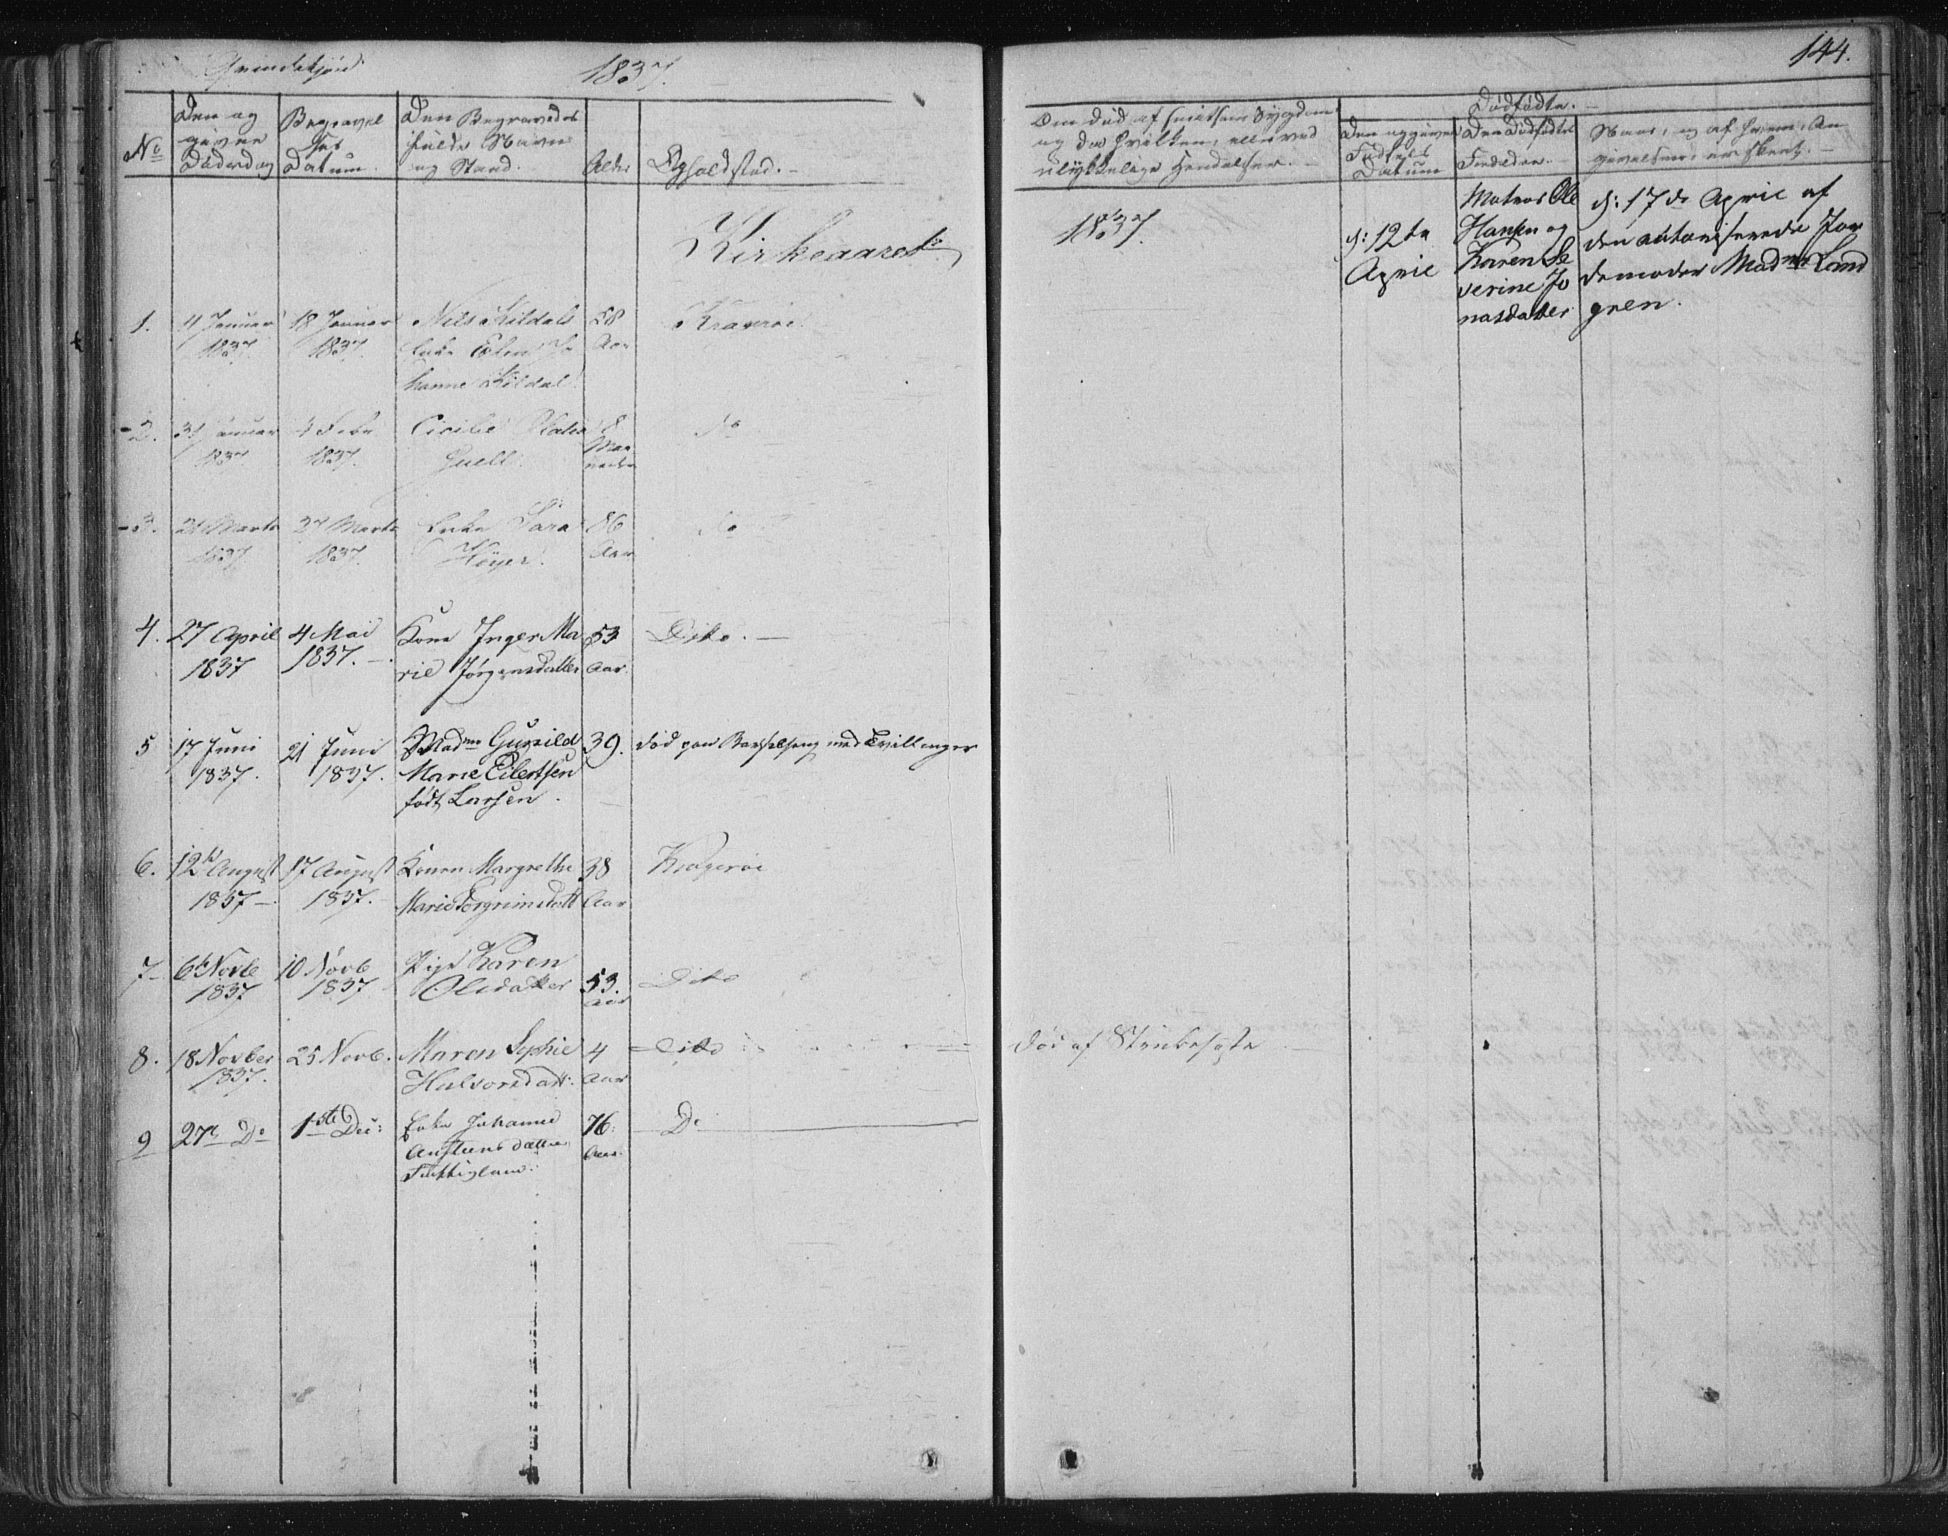 Qvindekjön
1837.
144.
No
Den op
givne
Dödsdag
Begravel
ses
Datum.
Den Begravedes
fulde Navn
og Stand.
Alder
Opholdsted.
Om död af smitsom Sygdom
og da hvilken, eller ved
ulykkelige Hendelser.
Dödfödte.
Den opgivne
Födsels
Datum
Den Dödfödtes
Forældre.
Naar, og af hvem, An
givelsen er skeet.
Kirkeaaret
1837.
d: 12te
April
Matros Ole
Hansen og
Karen Se
verine Jo
nasdatter
d: 17de April af
den autoriserede Jor
demoder Madme Land
gren.
1.
4 Januar
1837
18 Januar
1837.
Nils Kildals
Enke Jo
hanne Kildal
58
Aar
Krageröe
2.
31 Januar
1837
4 Febr
1837.
Cicilie
8
Maa
neder
do
3.
21 Marts
1837
27 Marts
1837.
Enke Sara
Höyer.
86
Aar
do
4.
27 April
1837
4 Mai
1837.
Kone Inger Ma
rie Jörgensdatter
53
Aar.
Dito.
5
17 Juni
1837.
21 Juni
1837.
Madme Gunild
Marie Eilertsen
födt Larsen.
39.
död paa Barselseng med Tvillinger
6.
12te August
1837
17 August
1837.
Konen Margrethe
Marie Torgrimsdatt
38
Aar
Krageröe
7
6te Novb
1837
10 Novb
1837
Pige Karen
Olsdatter
53.
Aar
Dito
8.
18 Novber
1837.
25 Novb.
Maren Sophie
Halvorsdatt.
4
Aar
Dito
död af Strubehoste
9
27e Do
1ste Dec:
Enke Johanne
Austensdatter
Fattiglem.
76.
Aar.
Do